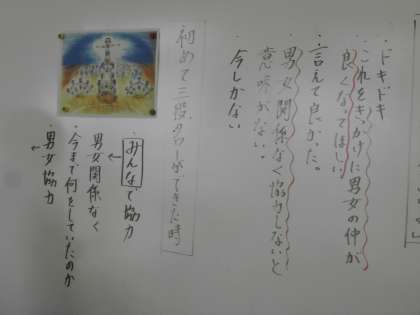 ・ドキドキ
・これをきっかけに男女の仲が
良くなってほしい
・言えて良かった。
・男女関係なく協力しないと
意味がない。
・今しかない
初めて三段タワーができた時
・みんなで協力
男女関係なく
・今まで何をしていたのか
・男女協力